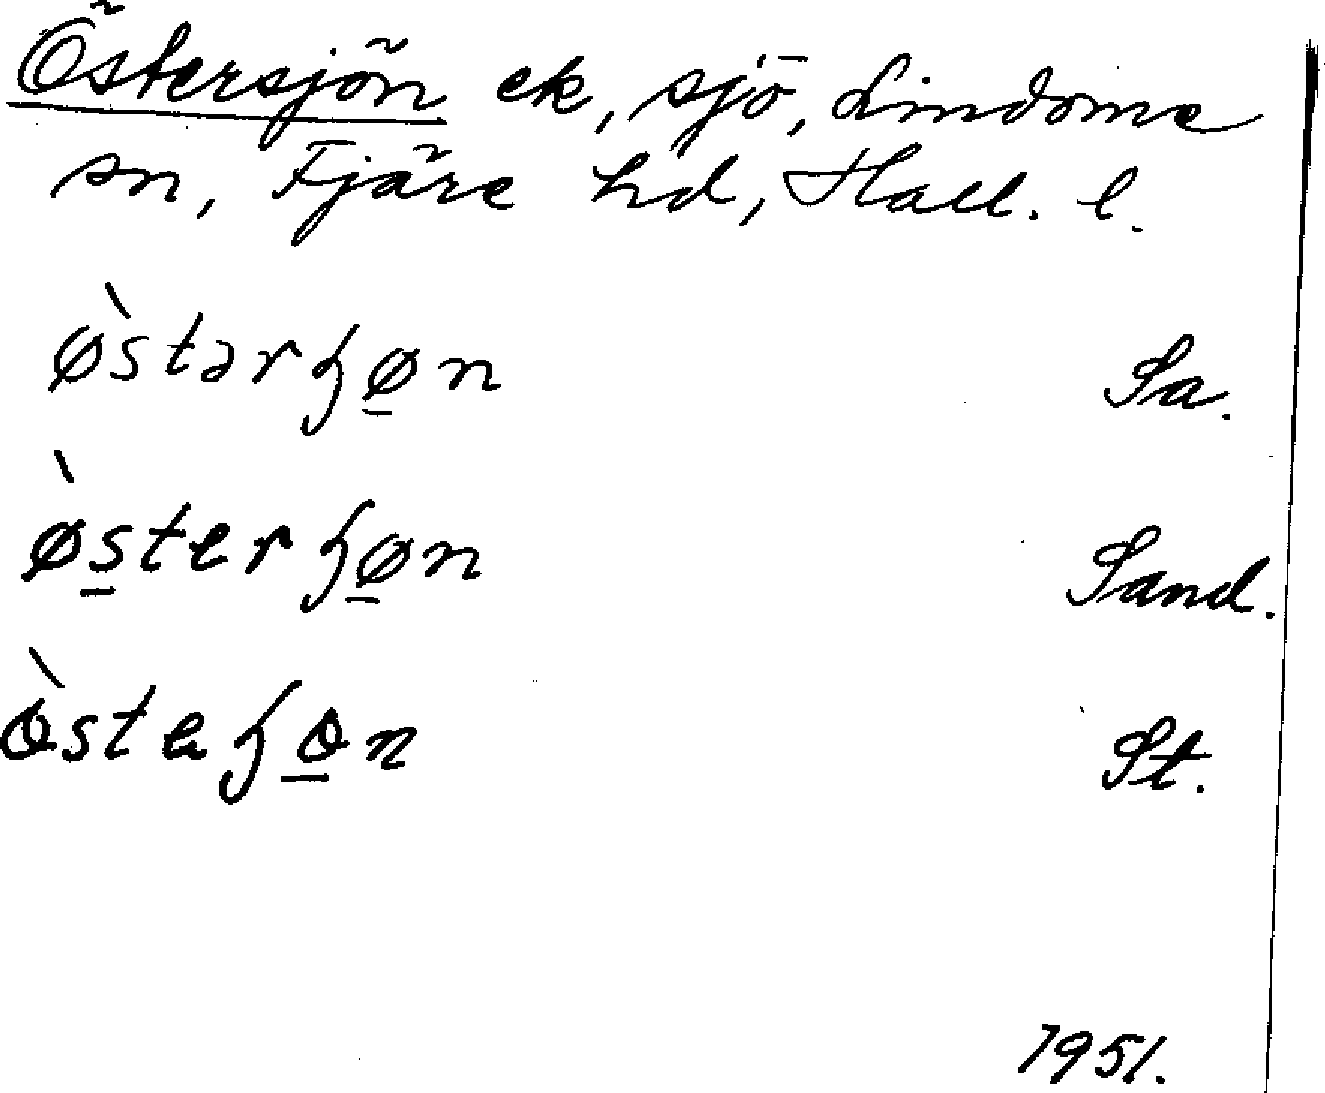 Östersjön ek, sjö, Lindome
sn, Fjäre hd, Hall. l.
østərɧøn Sa.
østerɧøn Sand.
Sand.
St.
1951.